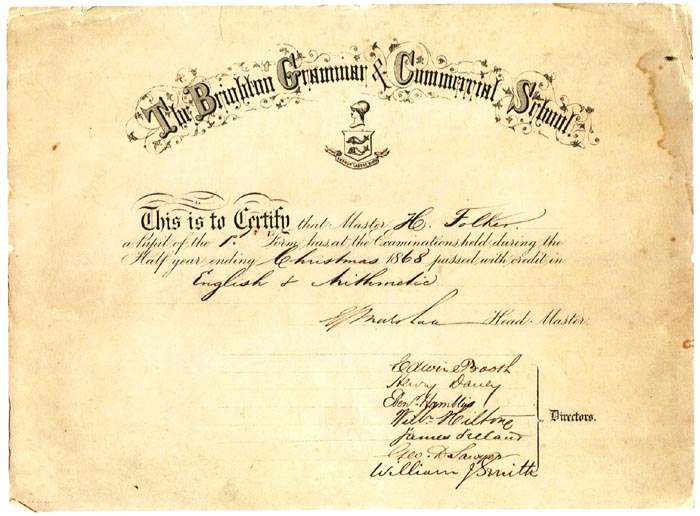 The Brighton Grammar & Commercial School.
This is to Certify that Master H. Folker
a Pupil of the 1st Form, has, at the Examinations held during the
Half year ending Christmas 1868 passed with credit in
English & Arithmetic
Head Master.
Edwin Booth
Henry Davey
Wm. Hilton
James Ireland
Geo. D. Sawyer
William J Smith
Directors.